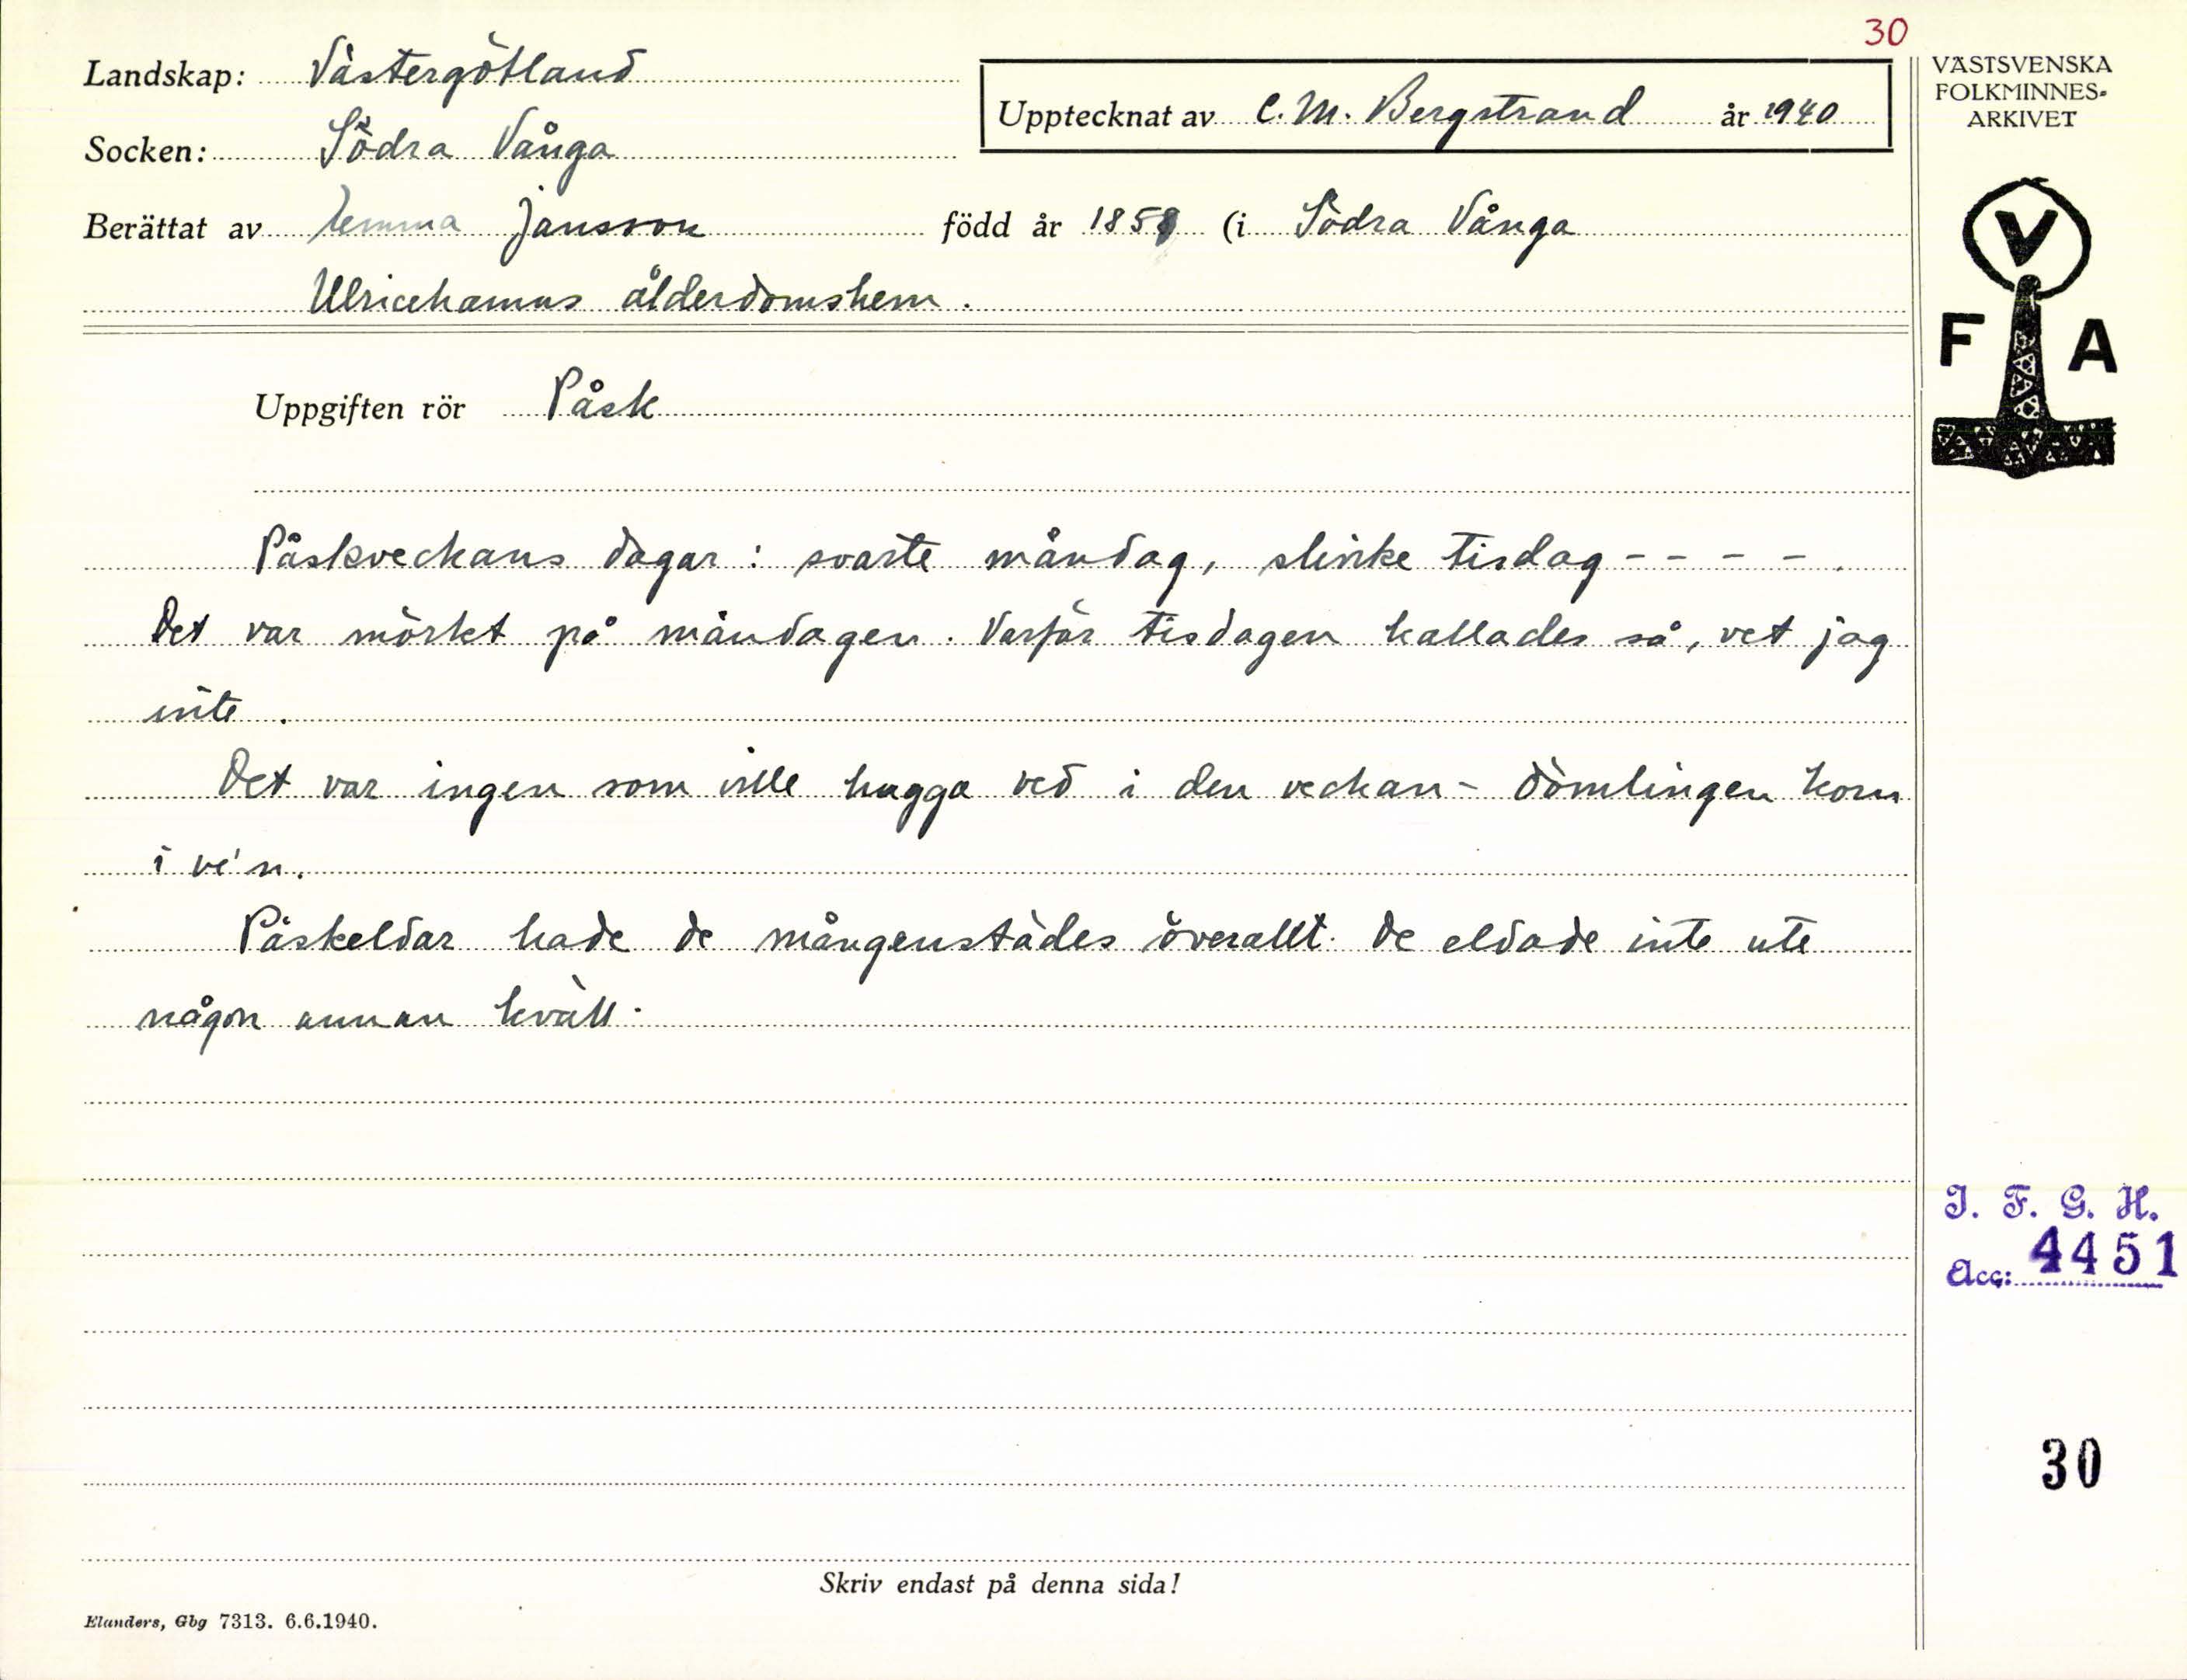 30
Landskap: Västergötland
Socken: Södra Vånga
Upptecknat av C. M. Bergstrand år 1940
Berättat av Jansson född år 1858 (i Södra Vånga
Ulricehamns ålderdomshem.
Uppgiften rör Påsk
Påskveckans dagar: svarte måndag, slinke tisdag - - - -.
Det var mörkt på måndagen. Varför tisdagen kallades så, vet jag
inte.
Det var ingen som ville hugga ved i den veckan - dömlingen kom
i ve'n.
Påskeldar hade de mångenstädes överallt. De eldade inte ute
någon annan kväll.
Skriv endast på denna sida!
Elanders, Gbg 7313. 6.6.1940.
VÄSTSVENSKA
FOLKMINNES-
ARKIVET
V
F A
I. F. G. H.
Acc: 4451
30